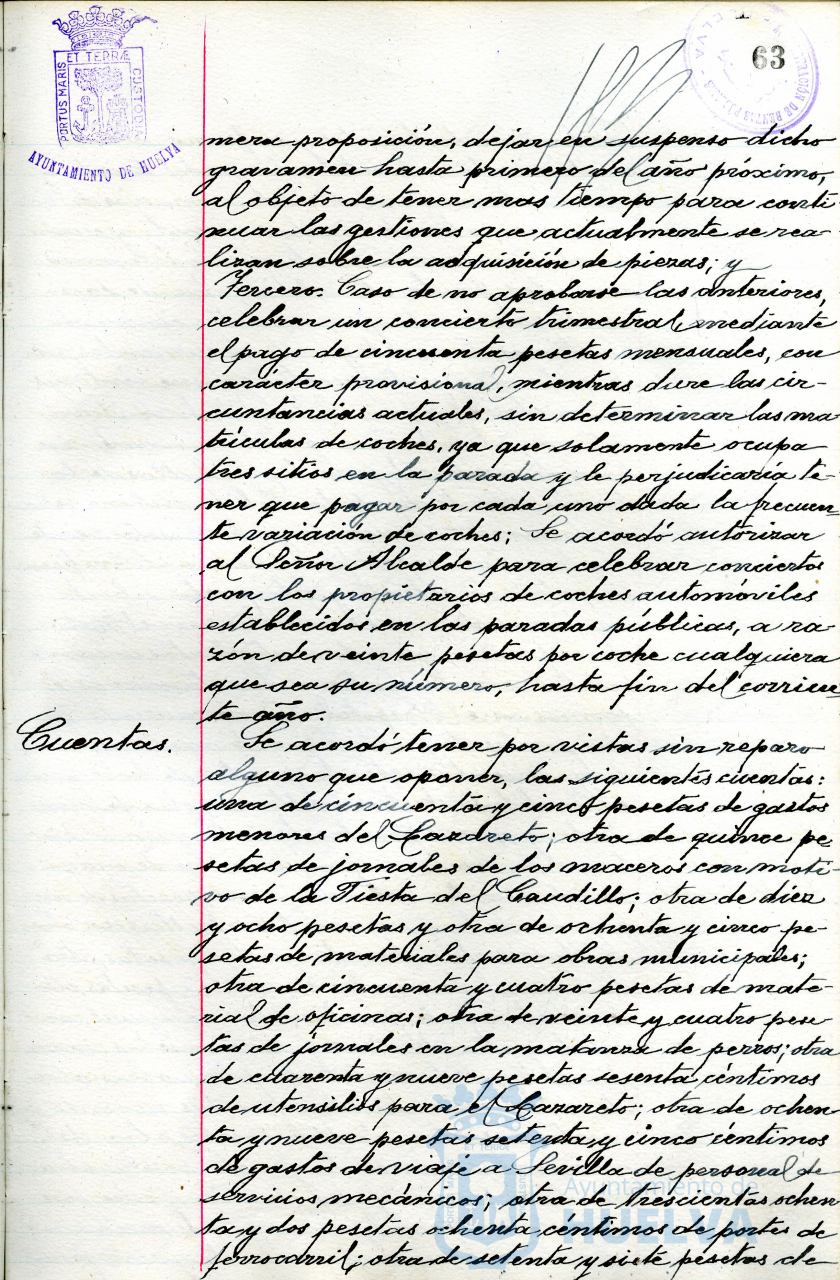 63
ET TERRÆ
PORTUS MARIS
CUSTODIA
AYUNTAMIENTO DE HUELVA
mera proposición, dejar en suspenso dicho
gravamen hasta primero del año próximo,
al objeto de tener mas tiempo para conti
nuar las gestiones que actualmente se rea-
lizan sobre la adquisición de piezas; y
Tercero. Caso de no aprobarse las anteriores,
celebrar un concierto trimestral, mediante
el pago de cincuenta pesetas mensuales, con
carácter provisional, mientras dure las cir-
cuntancias actuales, sin determinar las ma
trículas de coches, ya que solamente ocupa
tres sitios en la parada y le perjudicaría te-
ner que pagar por cada uno dada la frecuen
te variación de coches; Se acordó autorizar
al Señor Alcalde para celebrar conciertos
con los propietarios de coches automóviles
establecidos en las paradas públicas, a ra-
zón de veinte pesetas por coche cualquiera
que sea su número, hasta fin del corrien
te año.
Cuentas.
Se acordó tener por vistas sin reparo
alguno que oponer, las siguientes cuentas:
una de cincuenta y cinco pesetas de gastos
menores del Lazareto; otra de quince pe
setas de jornales de los maceros con moti-
vo de la Fiesta del Caudillo; otra de diez
y ocho pesetas y otra de ochenta y cinco pe-
setas de materiales para obras municipales;
otra de cincuenta y cuatro pesetas de mate-
rial de oficinas; otra de veinte y cuatro pese
tas de jornales en la matanza de perros; otra
de cuarenta y nueve pesetas sesenta céntimos
de utensilios para el Lazareto; otra de ochen
ta y nueve pesetas setenta y cinco céntimos
de gastos de viaje a Sevilla de personal de
servicios mecánicos; otra de trescientas ochen
ta y dos pesetas ochenta céntimos de portes de
ferrocarril; otra de setenta y siete pesetas de
Ayuntamiento de
HUELVA